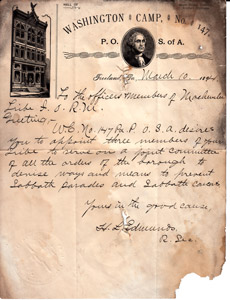 HALL OF
WASHINGTON CAMP, No. 147,
P. O. S. of A.
Freeland, Pa. March 10, 1894
To the officers & members of
Tribe I. O. R. M.
Greeting:-
W. C. No. 147 P. O. S. A. desires
you to appoint three members of your
tribe to serve on a joint committee
of all the orders of the borough to
devise ways and means to prevent
Sabbath parades and Sabbath
Yours in the good cause
H. L. Edmunds,
R. Sec.